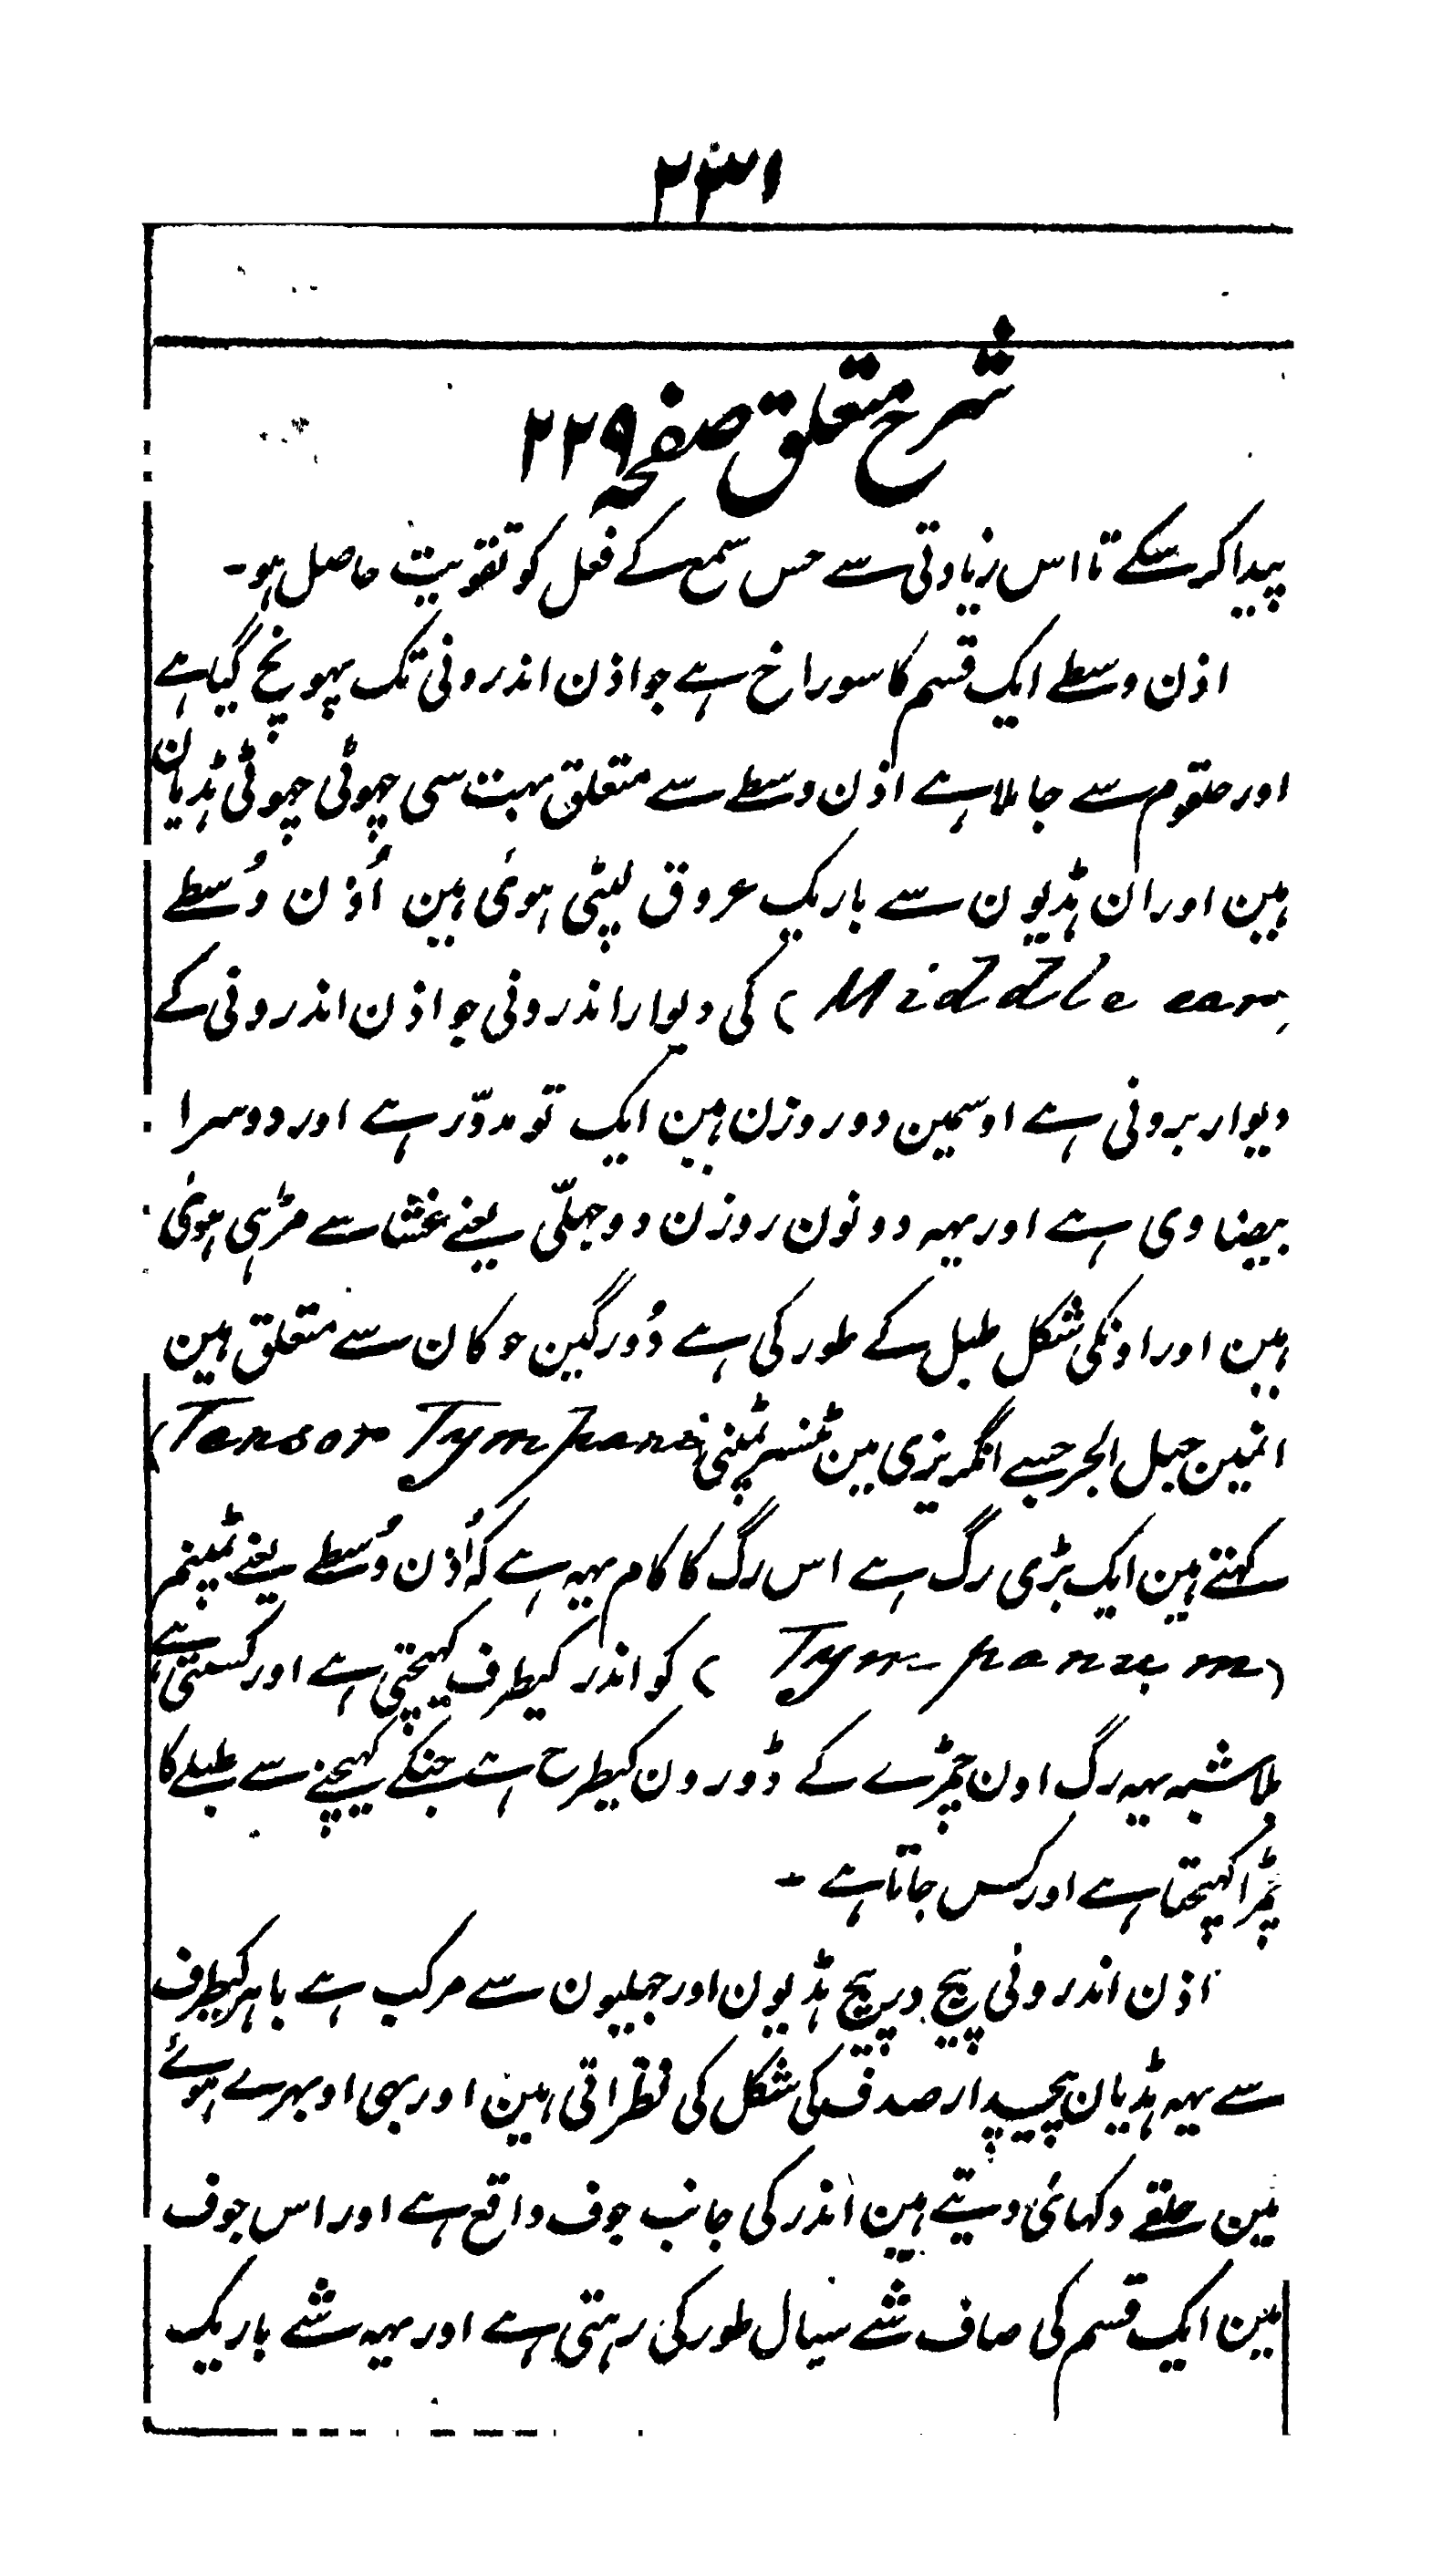 ۲۳۱
شرح متعلق صفحہ ۲۲۹
پیدا کر سکے تا اس زیادتی سے حس سمع کے فعل کو تقویت حاصل ہو۔
اذن وسطے ایک قسم کا سوراخ ہے جو اذن اندرونی تک پہونچ گیا ہے
اور حلقوم سے جا ملا ہے اذن وسطے سے متعلق بہت سی چھوٹی چھوٹی ہڈیان
ہین اور ان ہڈیون سے باریک عروق لپٹی ہوئی ہین اُذن وُسطے
(Middle ear) کی دیوار اندرونی جو اذن اندرونی کے
دیوار برونی ہے اوسمین دو روزن ہین ایک تو مدوّر ہے اور دوسرا
بیضاوی ہے اور یہہ دونون روزن دو جھلّی یعنے غشا سے مڑہی ہوئی
ہین اور اونکی شکل طبل کے طور کی ہے دُو رگین جو کان سے متعلق ہین
انمین حبل الجر جسے انگریزی مین ٹنسر ٹمپنی (Tensor Tympani)
کہتے ہین ایک بڑی رگ ہے اس رگ کا کام یہہ ہے کہ اُذن وُسطے یعنے ٹمپنم
(Tympanum) کو اندر کیطرف کھیچتی ہے اور کستی ہے
بلا شبہ یہہ رگ اون چمڑے کے ڈورون کیطرح ہے جنکے کھیچنے سے طبلے کا
چمڑا کھیچتا ہے اور کس جاتا ہے ۔
اذن اندرونی پیچ درپیچ ہڈیون اور جھلیون سے مرکب ہے باہر کیطرف
سے یہہ ہڈیان پیچدار صدف کی شکل کی نظر اتی ہین اور بھی اوبھرے ہوئے
مین حلقے دکہائی دیتے ہین اندر کی جانب جوف واقع ہے اور اس جوف
مین ایک قسم کی صاف شے سیال طور کی رہتی ہے اور یہہ شے باریک